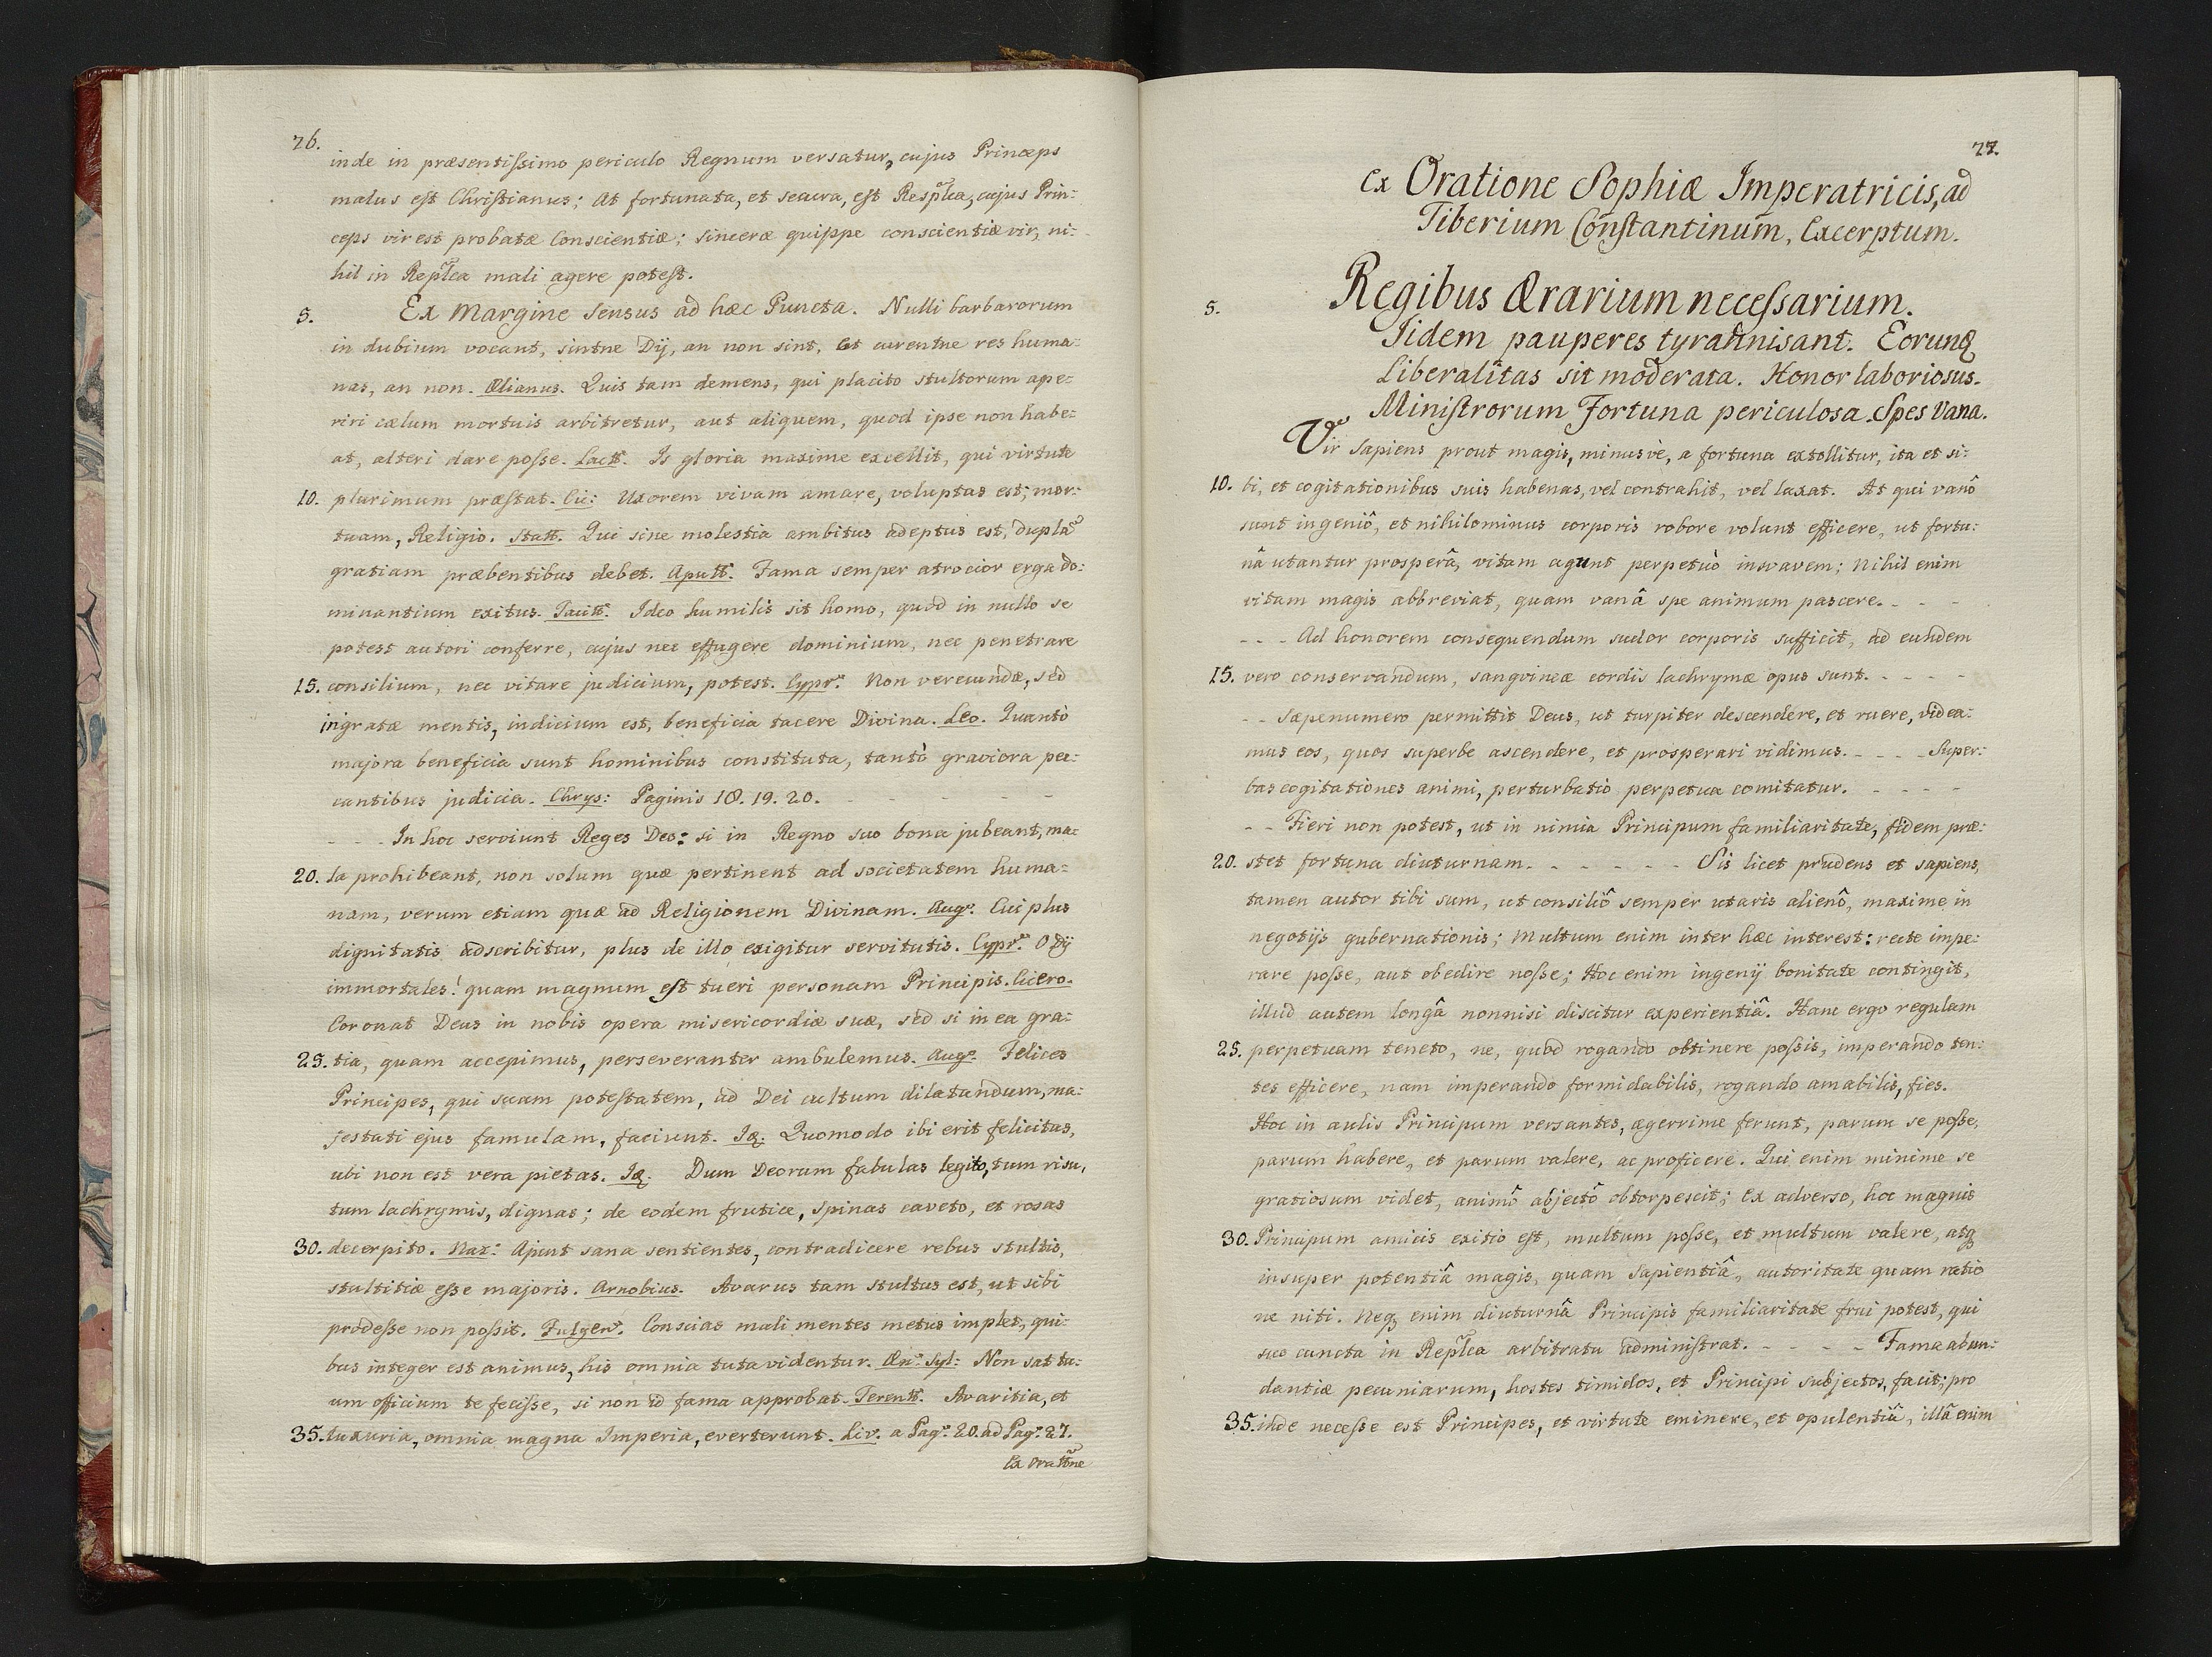 26.
inde in præsentissimo periculo Regnum versatur, cujus Princeps
malus est Christianus; At fortunata, et secura, est Resplĩca, cujus Prin:
ceps vir est probatæ Conscientiæ; sinceræ quippe conscientiæ vir, ni:
hil in Replĩca mali agere potest.
5. Ex Margine Sensus ad hæc Puncta. Nulli barbarorum
in dubium vocant, sintne Dij, an non sint, et curentne res huma:
nas, an non. Ælianus. Quis tam demens, qui placito stultorum ape:
riri cælum mortuis arbitretur, aut aliquem, quod ipse non habe:
at, alteri dare posse. Lactt. Is gloria maxime excellit, qui virtute
10. plurimum præstat. Cic: Uxorem vivam amare, voluptas est; mor:
tuam, Religio. Statt. Qui sine molestia ambitus adeptus est, duplã
gratiam præbentibus debet. Aputt. Fama semper atrocior erga do:
minantium exitus. Tacitt. Ideo humilis sit homo, quod in nullo se
potest autori conferre, cujus nec effugere dominium, nec penetrare
15. consilium, nec vitare judicium, potest. Cypr: Non verecundæ, sed
ingratæ mentis, indicium est, beneficia tacere Divina. Leo. Quantò
majora beneficia sunt hominibus constituta, tantò graviora pec:
cantibus judicia. Chrys: Paginis 18. 19. 20. - - - - -
- - - In hoc serviunt Reges Deo: si in Regno suo bona jubeant, ma:
20. la prohibeant, non solum quæ pertinent ad societatem huma:
nam, verum etiam quæ ad Religionem Divinam. Aug: Cui plus
dignitatis adscribitur, plus de illo exigitur servitutis. Cypr: O Dij
immortales! quam magnum est tueri personam Principis. Cicero.
Coronat Deus in nobis opera misericordiæ suæ, sed si in ea gra:
25. tia, quam accepimus, perseveranter ambulemus. Aug: Felices
Principes, qui suam potestatem, ad Dei cultum dilatandum, ma:
jestati ejus famulam, faciunt. Iq. Quomodo ibi erit felicitas,
ubi non est vera pietas. Iq. Dum Deorum fabulas legito, tum risu,
tum lachrymis, dignas; de eodem frutice, spinas caveto, et rosas
30. decerpito. Naz: Ajunt sana sentientes, contradicere rebus stultis,
stultitiæ esse majoris. Arnobius. Avarus tam stultus est, ut sibi
prodesse non possit. Fulgen: Conscias mali mentes metus implet, qui:
bus integer est animus, his omnia tuta videntur. Æn: Syl: Non sat tu:
um officium te fecisse, si non id fama approbat. Terentt. Avaritia, et
35. luxuria, omnia magna Imperia, everterunt. Liv. a Pag: 20. ad Pag: 27.
Ex Orattne
27.
Ex Oratione Sophiæ Imperatricis, ad
Tiberium Constantinum, Excerptum.
5. Regibus Ærarium necessarium.
Iidem pauperes tyrannisant. Eorunq
Liberalitas sit moderata. Honor laboriosus.
Ministrorum Fortuna periculosa. Spes Vana.
Vir Sapiens prout magis, minusvè, a fortuna extollitur, ita et si:
10. bi, et cogitationibus suis habenas, vel contrahit, vel laxat. At qui vanô
sunt ingeniô, et nihilominus corporis robore volunt efficere, ut fortu:
nâ utantur prosperâ, vitam agunt perpetuò insvavem; Nihil enim
vitam magis abbreviat, quam vanâ spe animum pascere. - - -
- - - Ad honorem consequendum sudor corporis sufficit, ad eundem
15. vero conservandum, sangvineæ cordis lachrymæ opus sunt. - - - -
- - Sæpenumero permittit Deus, ut turpiter descendere, et ruere, videa:
mus eos, quos superbe ascendere, et prosperari vidimus. - - - - Super:
bas cogitationes animi, perturbatio perpetua comitatur. - - - -
- - Fieri non potest, ut in nimia Principum familiaritate, fidem præ:
20. stet fortuna diuturnam. - - - - - - Sis licet prudens et sapiens,
tamen autor tibi sum, ut consiliô semper utaris alienô, maxime in
negotijs gubernationis; Multum enim inter hæc interest: recte impe:
rare posse, aut obedire nosse; Hoc enim ingenij bonitate contingit,
illud autem longâ nonnisi discitur experientiâ. Hanc ergo regulam
25. perpetuam teneto, ne, quod rogando obtinere possis, imperando ten:
tes efficere, nam imperando formidabilis, rogando amabilis, fies.
Hoc in aulis Principum versantes, ægerrime ferunt, parum se posse,
parum habere, et parum valere, ac proficere. Qui enim minime se
gratiosum videt, animô abjectô obtorpescit; Ex adverso, hoc magnis
30. Principum amicis exitio est, multum posse, et multum valere, atq
insuper potentiâ magis, quam Sapientiâ, autoritate quam ratio
ne niti. Neq enim diuturnâ Principis familiaritate frui potest, qui
suo cuncta in Replĩca arbitratu administrat. - - - - Fama abun:
dantiæ pecuniarum, hostes timidos, et Principi subjectos, facit; pro
35. inde necesse est Principes, et virtute eminere, et opulentiâ, illâ enim